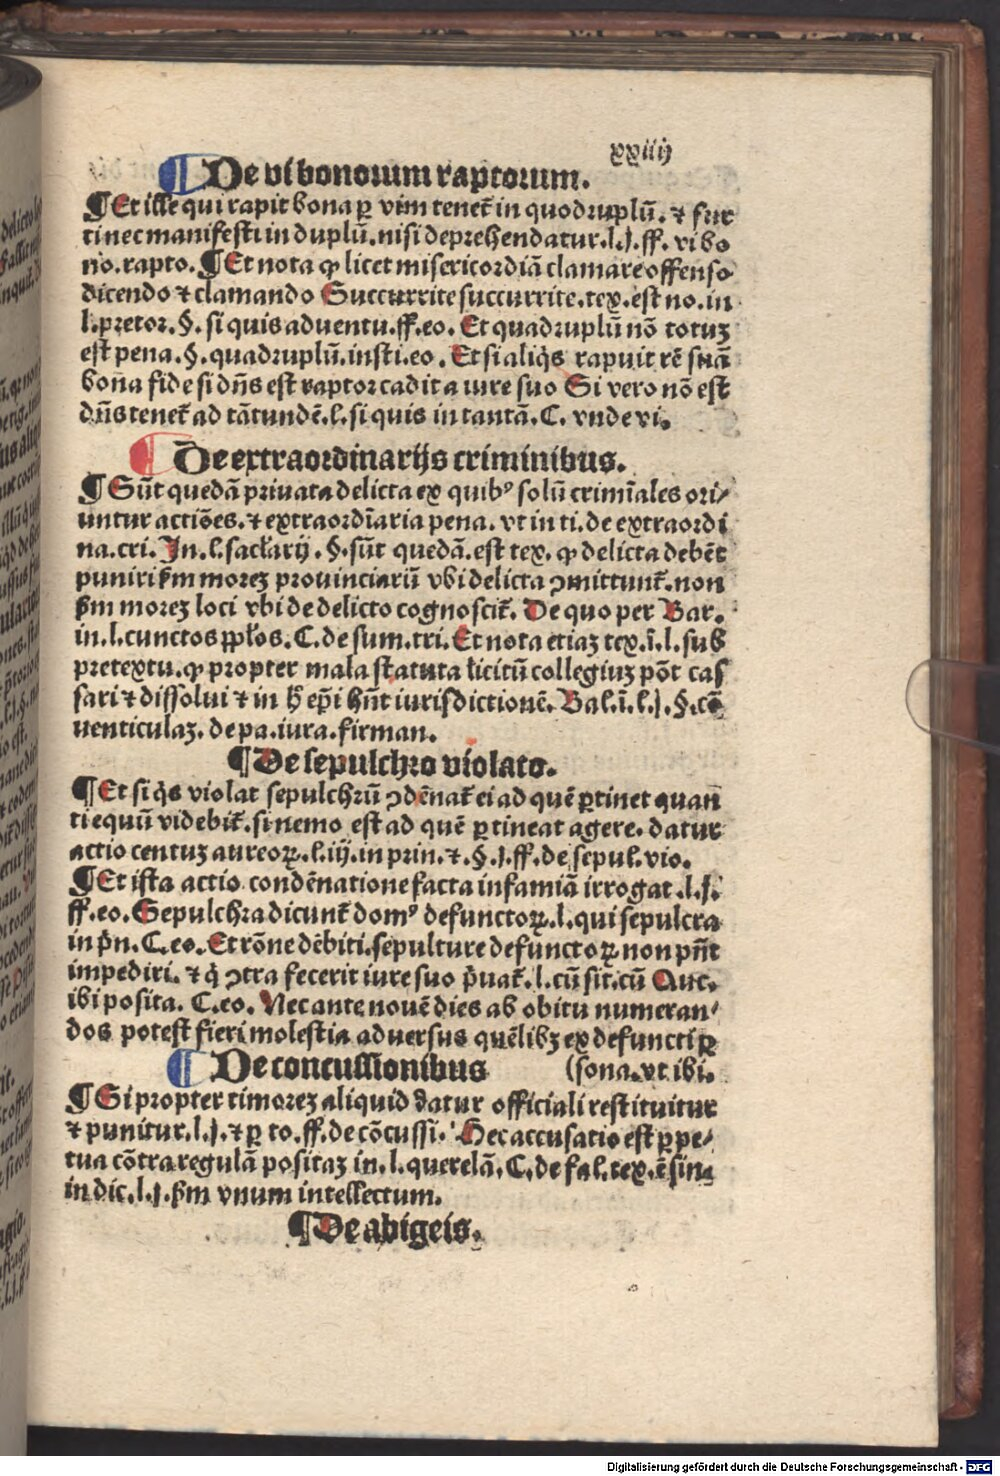 xxiiij
¶ De vi bonorum raptorum.
¶ Et ille qui rapit bona ꝑ vim tenet̄ in quodruplū. ⁊ fur
ti nec manifesti in duplū. nisi deprehendatur. l. j. ff. vi bo
no. rapto. ¶ Et nota ꝙ licet misericordiā clamare offenso
dicendo ⁊ clamando Succurrite succurrite. tex. est no. in
l. pretor. §. si quis aduentu. ff. eo. Et quadruplū nō totuꝫ
est pena. §. quadruplū. insti. eo. Et si aliq̇s rapuit rē suā
bona fide si dn̄s est raptor cadit a iure suo Si vero nō est
dn̄s tenet̄ ad tātundē. l. si quis in tantā. C. vnde vi.
¶ De extraordinarijs criminibus.
¶ Sūt quedā priuata delicta ex quibꝰ solū crimīales ori/
untur actiōes. ⁊ extraordīaria pena. vt in ti. de extraordi
na. cri. In. l. saclarij. §. sūt quedā. est tex. ꝙ delicta debēt
puniri ẜm moreꝫ prouinciarū vbi delicta ꝯmittunt̄. non
ẜm moreꝫ loci vbi de delicto cognoscit̄. De quo per Bar.
in. l. cunctos pplos. C. de sum. tri. Et nota etiaꝫ tex. ī. l. sub
pretextu. ꝙ propter mala statuta licitū collegiuꝫ pōt cas
sari ⁊ dissolui ⁊ in h̄ ep̄i hn̄t iurisdictionē. Bal. ī. l. j. §. cō
uenticulaꝫ. de pa. iura. firman.
¶ De sepulchro violato.
¶ Et si q̇s violat sepulchrū ꝯdēnat̄ ei ad quē ꝑtinet quan
ti equū videbit̄. si nemo est ad quē ꝑtineat agere. datur
actio centuꝫ aureoꝝ. l. iij. in prin. ⁊. §. j. ff. de sepul. vio.
¶ Et ista actio condēnatione facta infamiā irrogat. l. j.
ff. eo. Sepulchra dicunt̄ domꝰ defunctoꝝ. l. qui sepulcra
in p̄n. C. eo. Et rōne dēbiti. sepulture defunctoꝝ non pn̄t
impediri. ⁊ q̇ ꝯtra fecerit iure suo p̄uat̄. l. cū sit. cū Auc.
ibi posita. C. eo. Nec ante nouē dies ab obitu numeran/
dos potest fieri molestia aduersus quēlibꝫ ex defuncti ꝑ
¶ De concussionibus (sona. vt ibi.
¶ Si propter timoreꝫ aliquid datur officiali restituitur
⁊ punitur. l. j. ⁊ ꝑ to. ff. de cōcussi. Hec accusatio est ꝑpe/
tua cōtra regulā positaꝫ in. l. querelā. C. de fal. tex. ē sing
in dic. l. j. ẜm vnum intellectum.
¶ De abigeis.
Digitalisierung gefördert durch die Deutsche Forschungsgemeinschaft - DFG